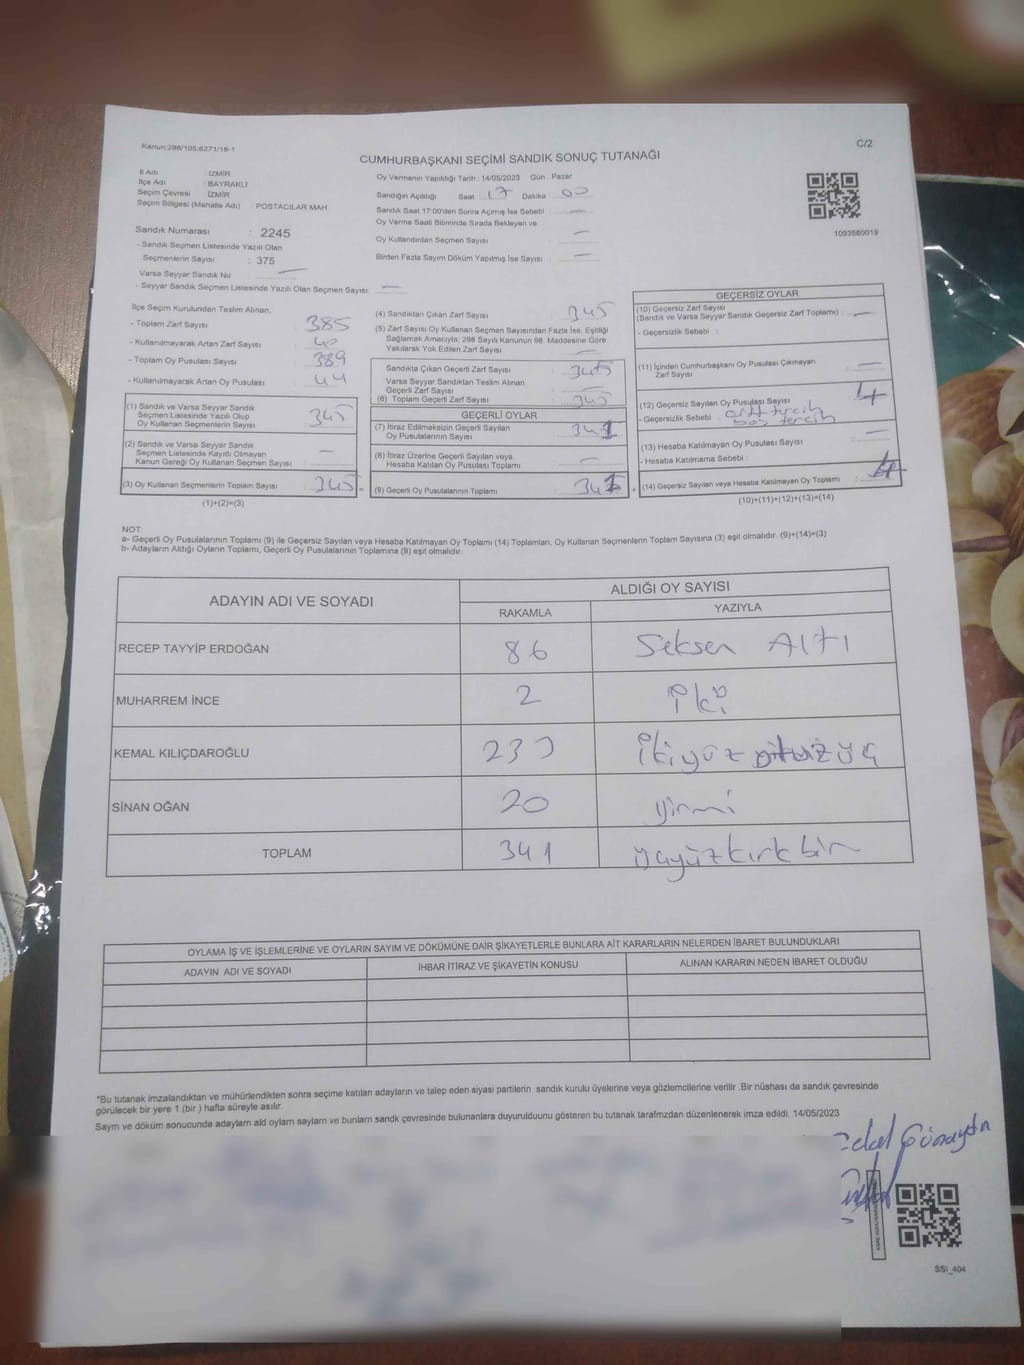 Kanun:298/105;6271/18-1
C/2
CUMHURBAŞKANI SEÇİMİ SANDIK SONUÇ TUTANAĞI
İl Adı : İZMİR
İlçe Adı : BAYRAKLI
Seçim Çevresi : İZMİR
Seçim Bölgesi (Mahalle Adı) : POSTACILAR MAH.
Oy Vermenin Yapıldığı Tarih : 14/05/2023 Gün : Pazar
Sandığın Açıldığı Saat 17 Dakika 00
Sandık Saat 17:00'den Sonra Açımış İse Sebebi : —
Oy Verme Saati Bitiminde Sırada Bekleyen ve
Oy Kullandırılan Seçmen Sayısı : —
Birden Fazla Sayım Döküm Yapılmış İse Sayısı : —
1093580019
Sandık Numarası : 2245
- Sandık Seçmen Listesinde Yazılı Olan
Seçmenlerin Sayısı : 375
Varsa Seyyar Sandık No —
- Seyyar Sandık Seçmen Listesinde Yazılı Olan Seçmen Sayısı : —
İlçe Seçim Kurulundan Teslim Alınan;
- Toplam Zarf Sayısı : 385
- Kullanılmayarak Artan Zarf Sayısı : 40
- Toplam Oy Pusulası Sayısı : 389
- Kullanılmayarak Artan Oy Pusulası : 44
(1) Sandık ve Varsa Seyyar Sandık
Seçmen Listesinde Yazılı Olup
Oy Kullanan Seçmenlerin Sayısı : 345
(2) Sandık ve Varsa Seyyar Sandık
Seçmen Listesinde Kayıtlı Olmayan
Kanun Gereği Oy Kullanan Seçmen Sayısı : —
(3) Oy Kullanan Seçmenlerin Toplam Sayısı : 345
(1)+(2)=(3)
(4) Sandıktan Çıkan Zarf Sayısı : 345
(5) Zarf Sayısı Oy Kullanan Seçmen Sayısından Fazla İse, Eşitliği
Sağlamak Amacıyla; 298 Sayılı Kanunun 98. Maddesine Göre
Yakılarak Yok Edilen Zarf Sayısı : —
Sandıkta Çıkan Geçerli Zarf Sayısı : 345
Varsa Seyyar Sandıktan Teslim Alınan
Geçerli Zarf Sayısı
(6) Toplam Geçerli Zarf Sayısı : 345
GEÇERLİ OYLAR
(7) İtiraz Edilmeksizin Geçerli Sayılan
Oy Pusulalarının Sayısı : 341
(8) İtiraz Üzerine Geçerli Sayılan veya
Hesaba Katılan Oy Pusulası Toplamı : —
(9) Geçerli Oy Pusulalarının Toplamı : 341
GEÇERSİZ OYLAR
(10) Geçersiz Zarf Sayısı
(Sandık ve Varsa Seyyar Sandık Geçersiz Zarf Toplamı) : —
- Geçersizlik Sebebi :
(11) İçinden Cumhurbaşkanı Oy Pusulası Çıkmayan
Zarf Sayısı : —
(12) Geçersiz Sayılan Oy Pusulası Sayısı : 4
- Geçersizlik Sebebi : tercih
boş tercih
(13) Hesaba Katılmayan Oy Pusulası Sayısı : —
- Hesaba Katılmama Sebebi :
(14) Geçersiz Sayılan veya Hesaba Katılmayan Oy Toplamı : 4
(10)+(11)+(12)+(13)=(14)
NOT:
a- Geçerli Oy Pusulalarının Toplamı (9) ile Geçersiz Sayılan veya Hesaba Katılmayan Oy Toplamı (14) Toplamları, Oy Kullanan Seçmenlerin Toplam Sayısına (3) eşit olmalıdır. (9)+(14)=(3)
b- Adayların Aldığı Oyların Toplamı, Geçerli Oy Pusulalarının Toplamına (9) eşit olmalıdır.
ADAYIN ADI VE SOYADI
ALDIĞI OY SAYISI
RAKAMLA YAZIYLA
RECEP TAYYİP ERDOĞAN 86 Seksen Altı
MUHARREM İNCE 2 İki
KEMAL KILIÇDAROĞLU 233 İkiyüz otuz üç
SİNAN OĞAN 20 yirmi
TOPLAM 341 üçyüzkırkbir
OYLAMA İŞ VE İŞLEMLERİNE VE OYLARIN SAYIM VE DÖKÜMÜNE DAİR ŞİKAYETLERLE BUNLARA AİT KARARLARIN NELERDEN İBARET BULUNDUKLARI
ADAYIN ADI VE SOYADI İHBAR İTİRAZ VE ŞİKAYETİN KONUSU ALINAN KARARIN NEDEN İBARET OLDUĞU
*Bu tutanak imzalandıktan ve mühürlendikten sonra seçime katılan adayların ve talep eden siyasi partilerin sandık kurulu üyelerine veya gözlemcilerine verilir .Bir nüshası da sandık çevresinde
görülecek bir yere 1 (bir ) hafta süreyle asılır.
Saym ve döküm sonucunda adaylarn ald oylarn saylarn ve bunlarn sandk çevresinde bulunanlara duyurulduunu gösteren bu tutanak tarafmzdan düzenlenerek imza edildi. 14/05/2023
SSI_404